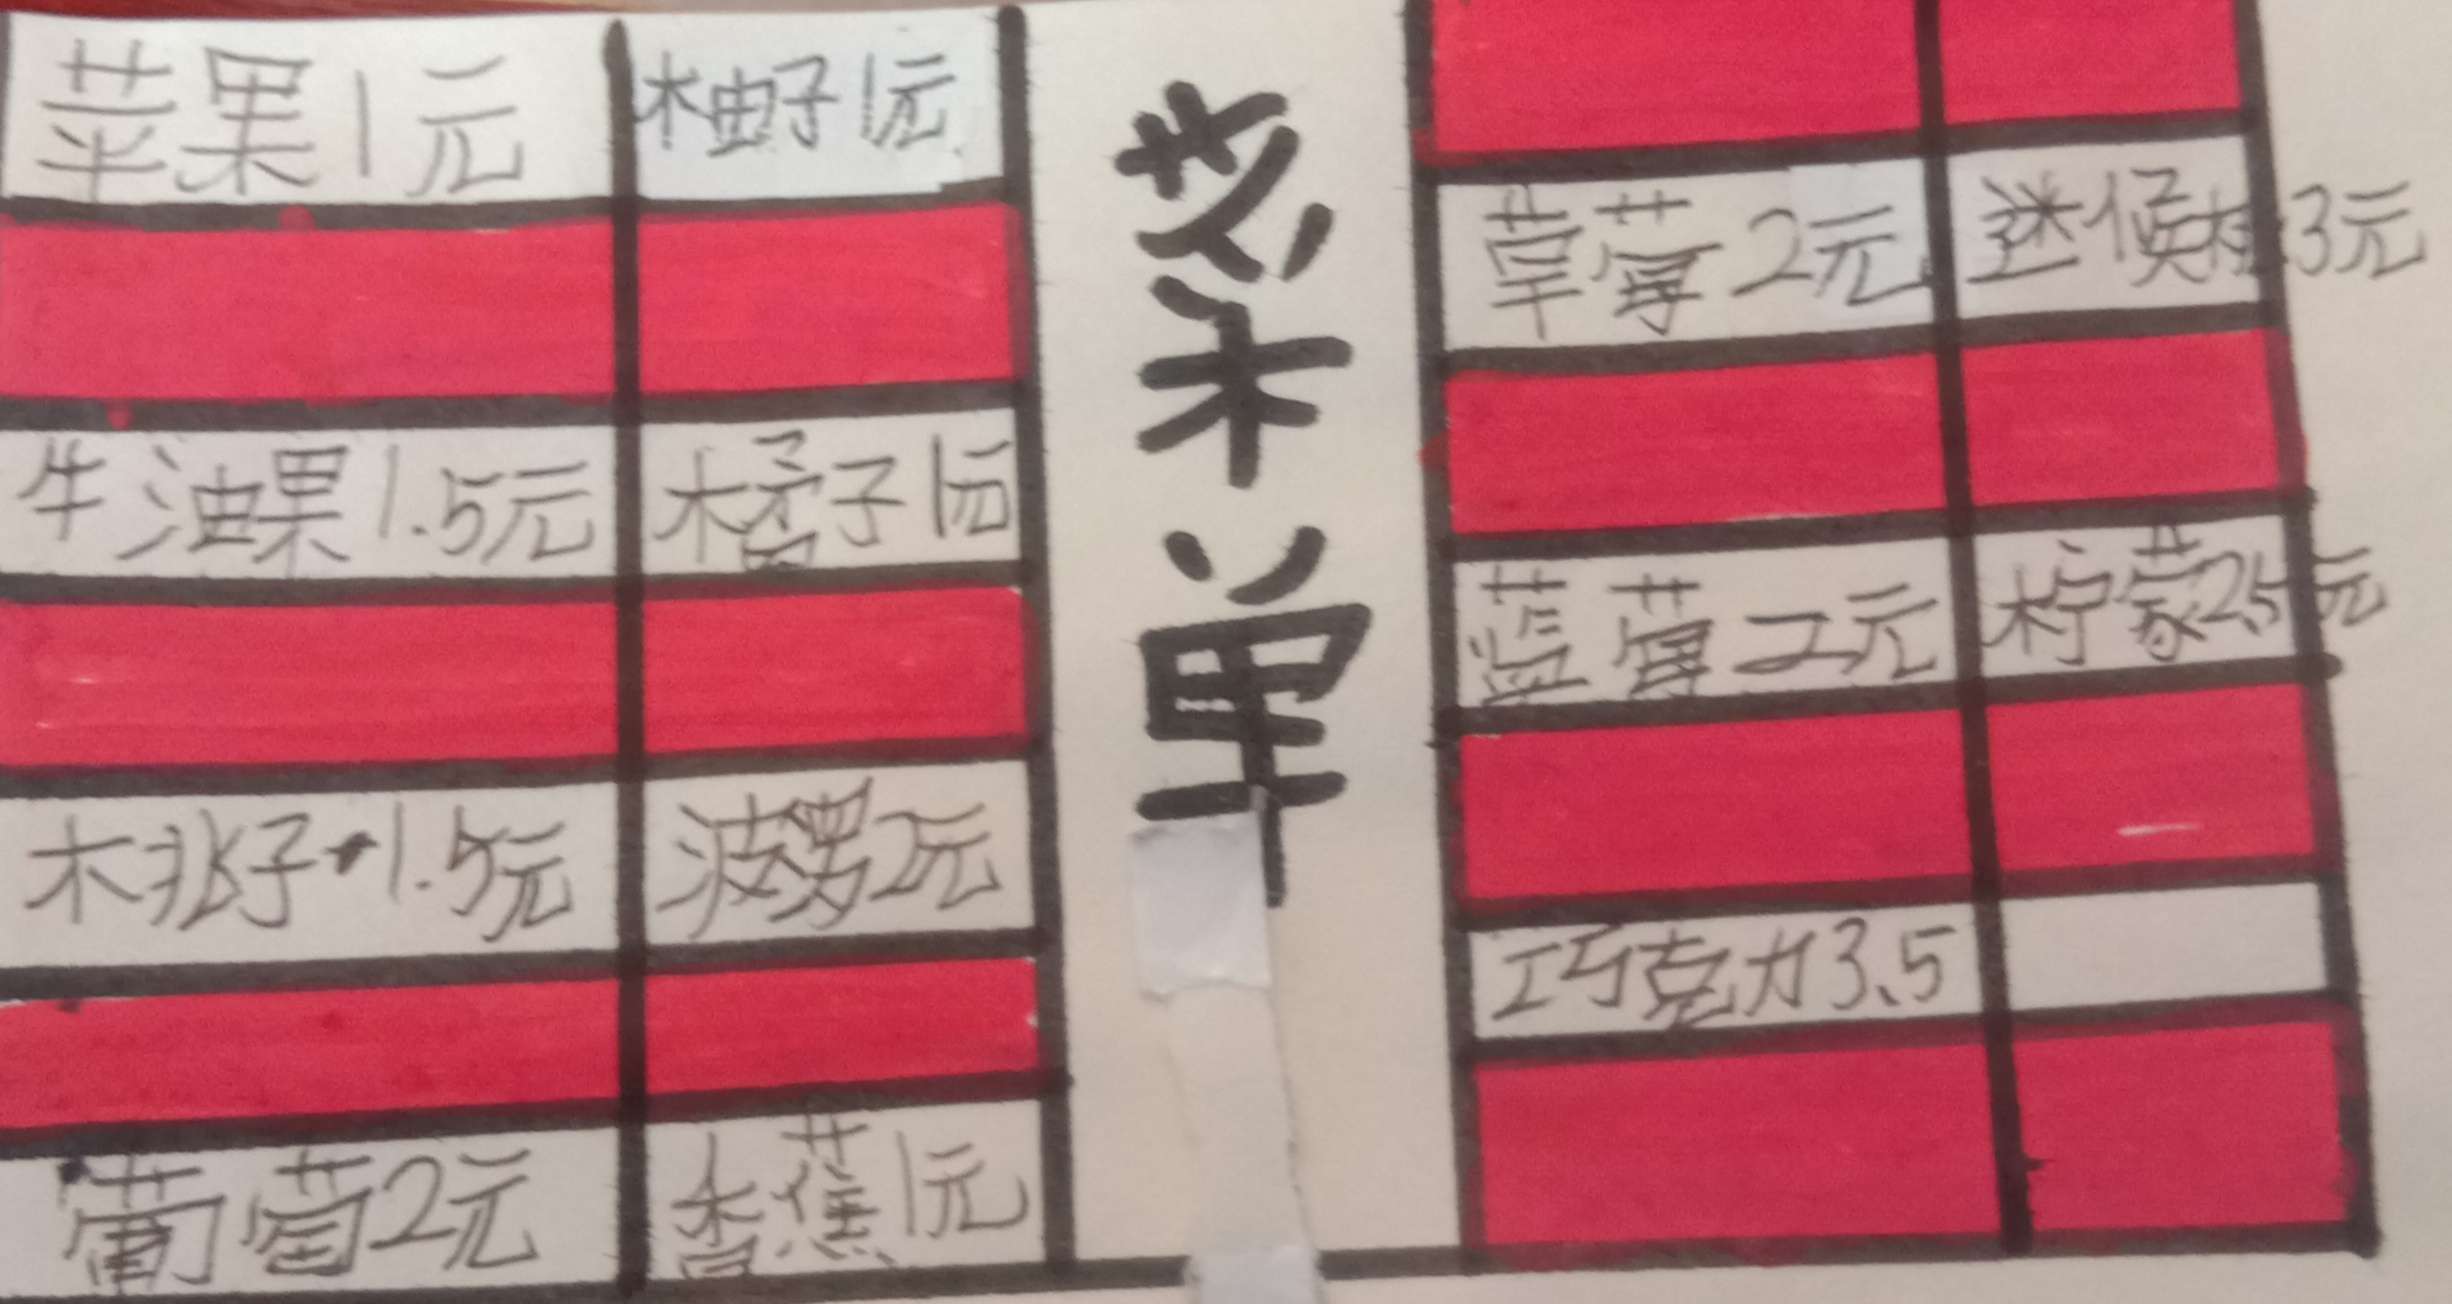 苹果1元
柚子1元
牛油果1.5元
橘子1元
桃子1.5元
波罗2元
葡萄2元
香蕉1元
菜单
草莓2元
迷候桃3元
蓝莓2元
柠蒙2.5元
巧克力3.5